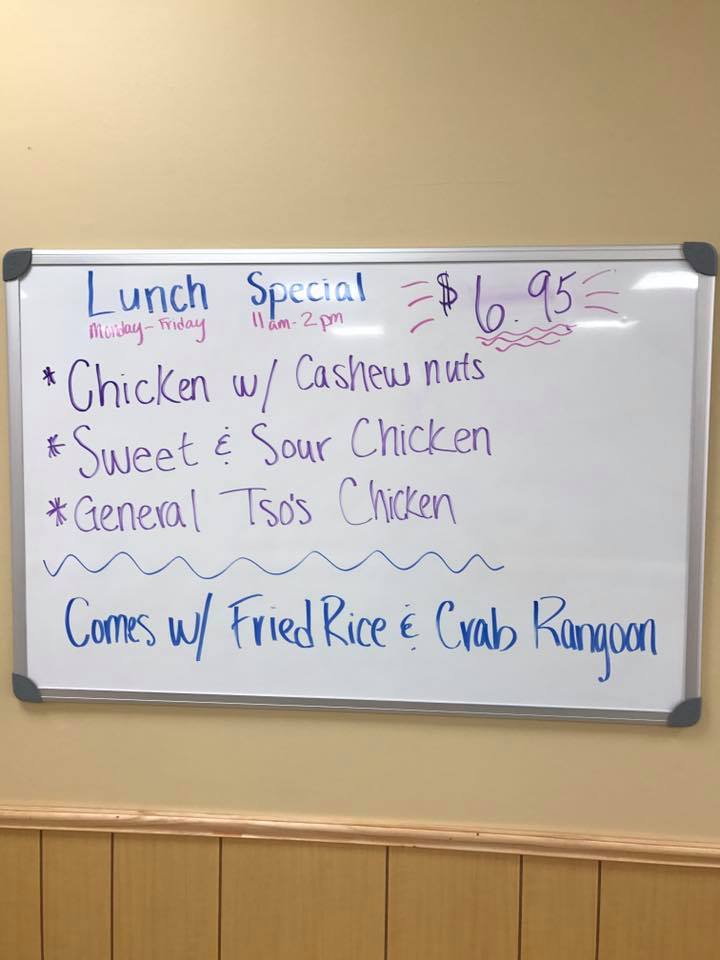 Lunch Special $6.95
Monday-Friday 11am-2pm
* Chicken w/ Cashew nuts
* Sweet & Sour Chicken
* General Tso's Chicken
Comes w/ Fried Rice & Crab Rangoon